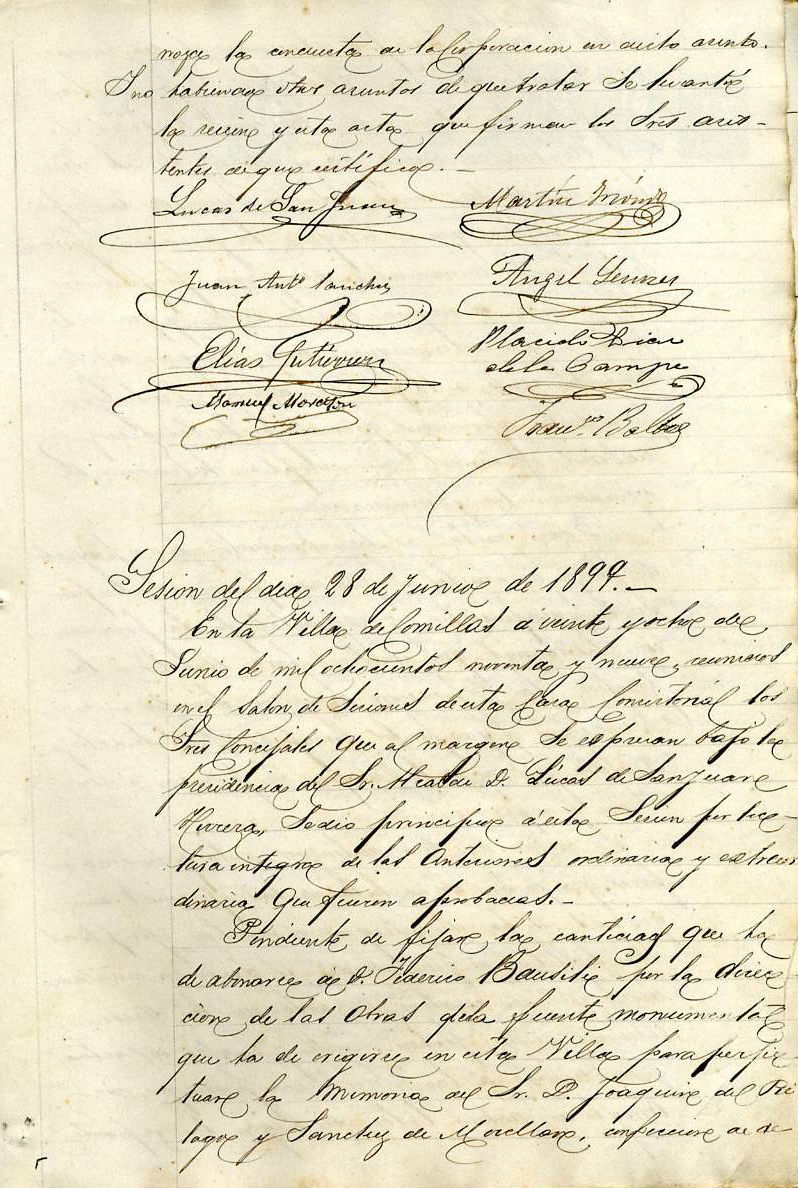 noza la conducta de la Corporacion en dicto asunto.
Y no habiendo otros asuntos de que tratar se levantó
la sesion y esta acta que firman los Sres asis-
tentes de que certifico.-
Lucas de San Juan Martín
Juan Antº Sanchez Angel
Elías Gutiérrez Placido Diaz
de la Campa
Manuel Franco. Balbas
Sesion del dia 28 de Junio de 1899.-
En la Villa de Comillas á veinte y ocho de
Junio de mil ochocientos noventa y nueve, reunidos
en el Salon de Sesiones de esta Casa Consistorial los
Sres Concejales que al margen se espresan bajo la
presidencia del Sr. Alcalde D. Lucas de San Juan
Herrera, se dio principio á esta Sesion por lec-
tura integra de las anteriores ordinaria y estraor
dinaria que fueron aprobadas.-
Pendiente de fijar la cantidad que ha
de abonarse a D. Federico por la direc-
cion de las Obras de la fuente monumental
que ha de erigirse en esta Villa para perpe-
tuar la Memoria del Sr. D. Joaquin del Pié
lago y Sanchez de Movellan,